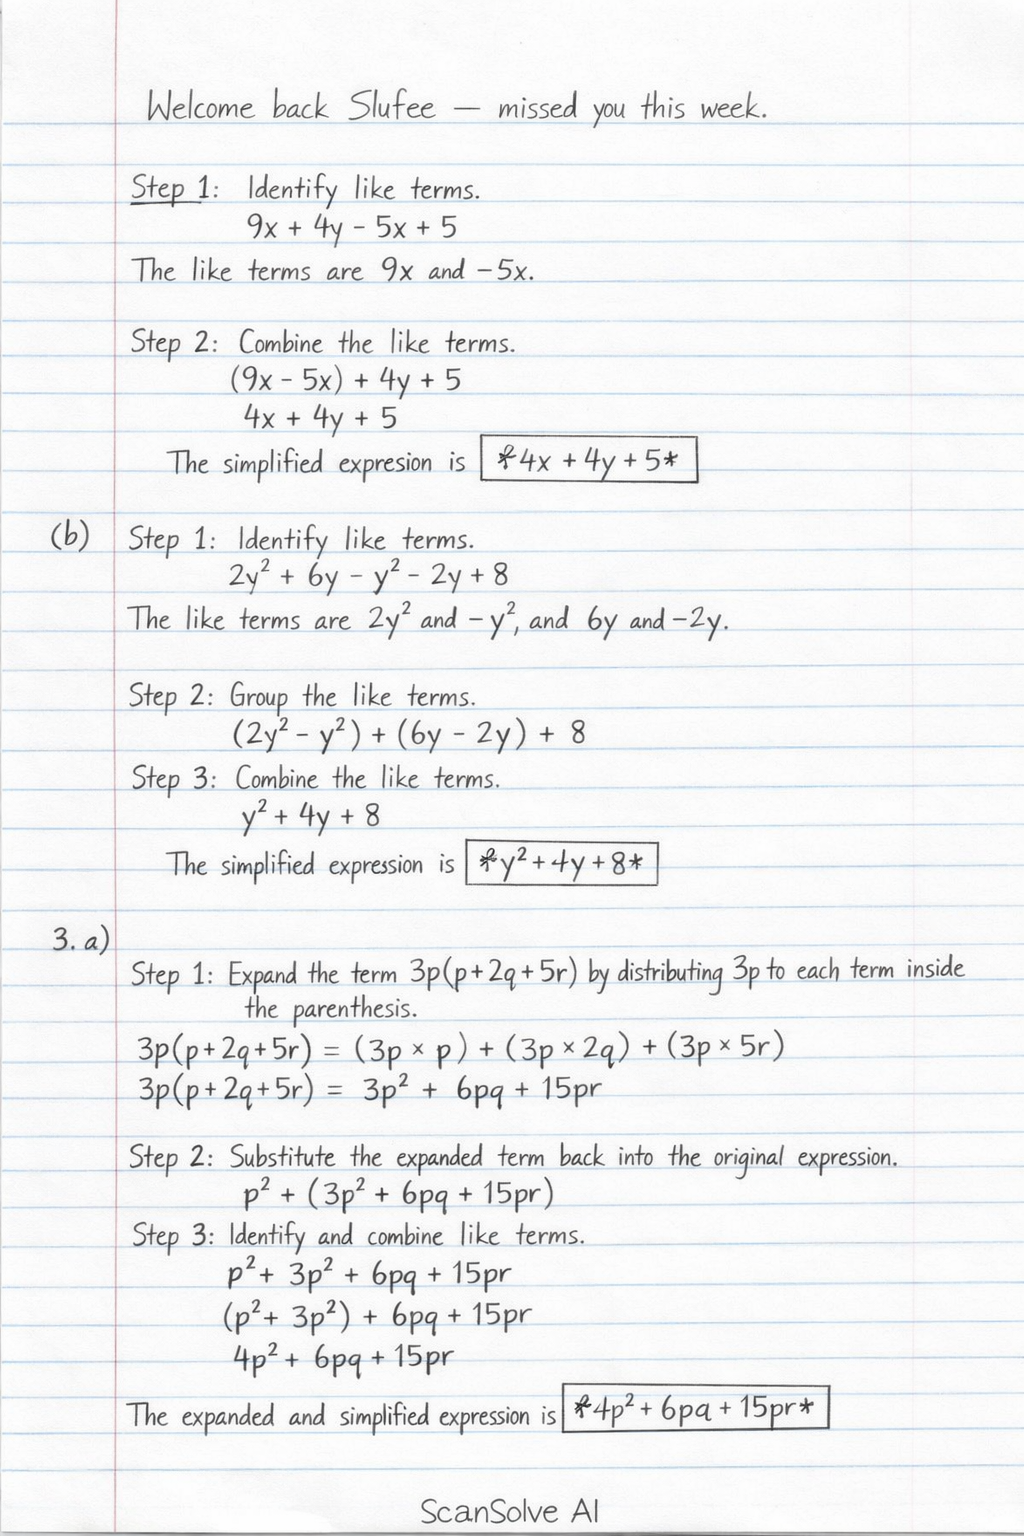 Welcome back Slufee — missed you this week.
Step 1: Identify like terms.
9x + 4y - 5x + 5
The like terms are 9x and -5x.
Step 2: Combine the like terms.
(9x - 5x) + 4y + 5
4x + 4y + 5
The simplified expresion is *4x + 4y + 5*
(b) Step 1: Identify like terms.
2y² + 6y - y² - 2y + 8
The like terms are 2y² and -y², and 6y and -2y.
Step 2: Group the like terms.
(2y² - y²) + (6y - 2y) + 8
Step 3: Combine the like terms.
y² + 4y + 8
The simplified expression is *y² + 4y + 8*
3. a)
Step 1: Expand the term 3p(p+2q+5r) by distributing 3p to each term inside
the parenthesis.
3p(p+2q+5r) = (3p × p) + (3p × 2q) + (3p × 5r)
3p(p+2q+5r) = 3p² + 6pq + 15pr
Step 2: Substitute the expanded term back into the original expression.
p² + (3p² + 6pq + 15pr)
Step 3: Identify and combine like terms.
p² + 3p² + 6pq + 15pr
(p² + 3p²) + 6pq + 15pr
4p² + 6pq + 15pr
The expanded and simplified expression is *4p² + 6pq + 15pr*
ScanSolve AI